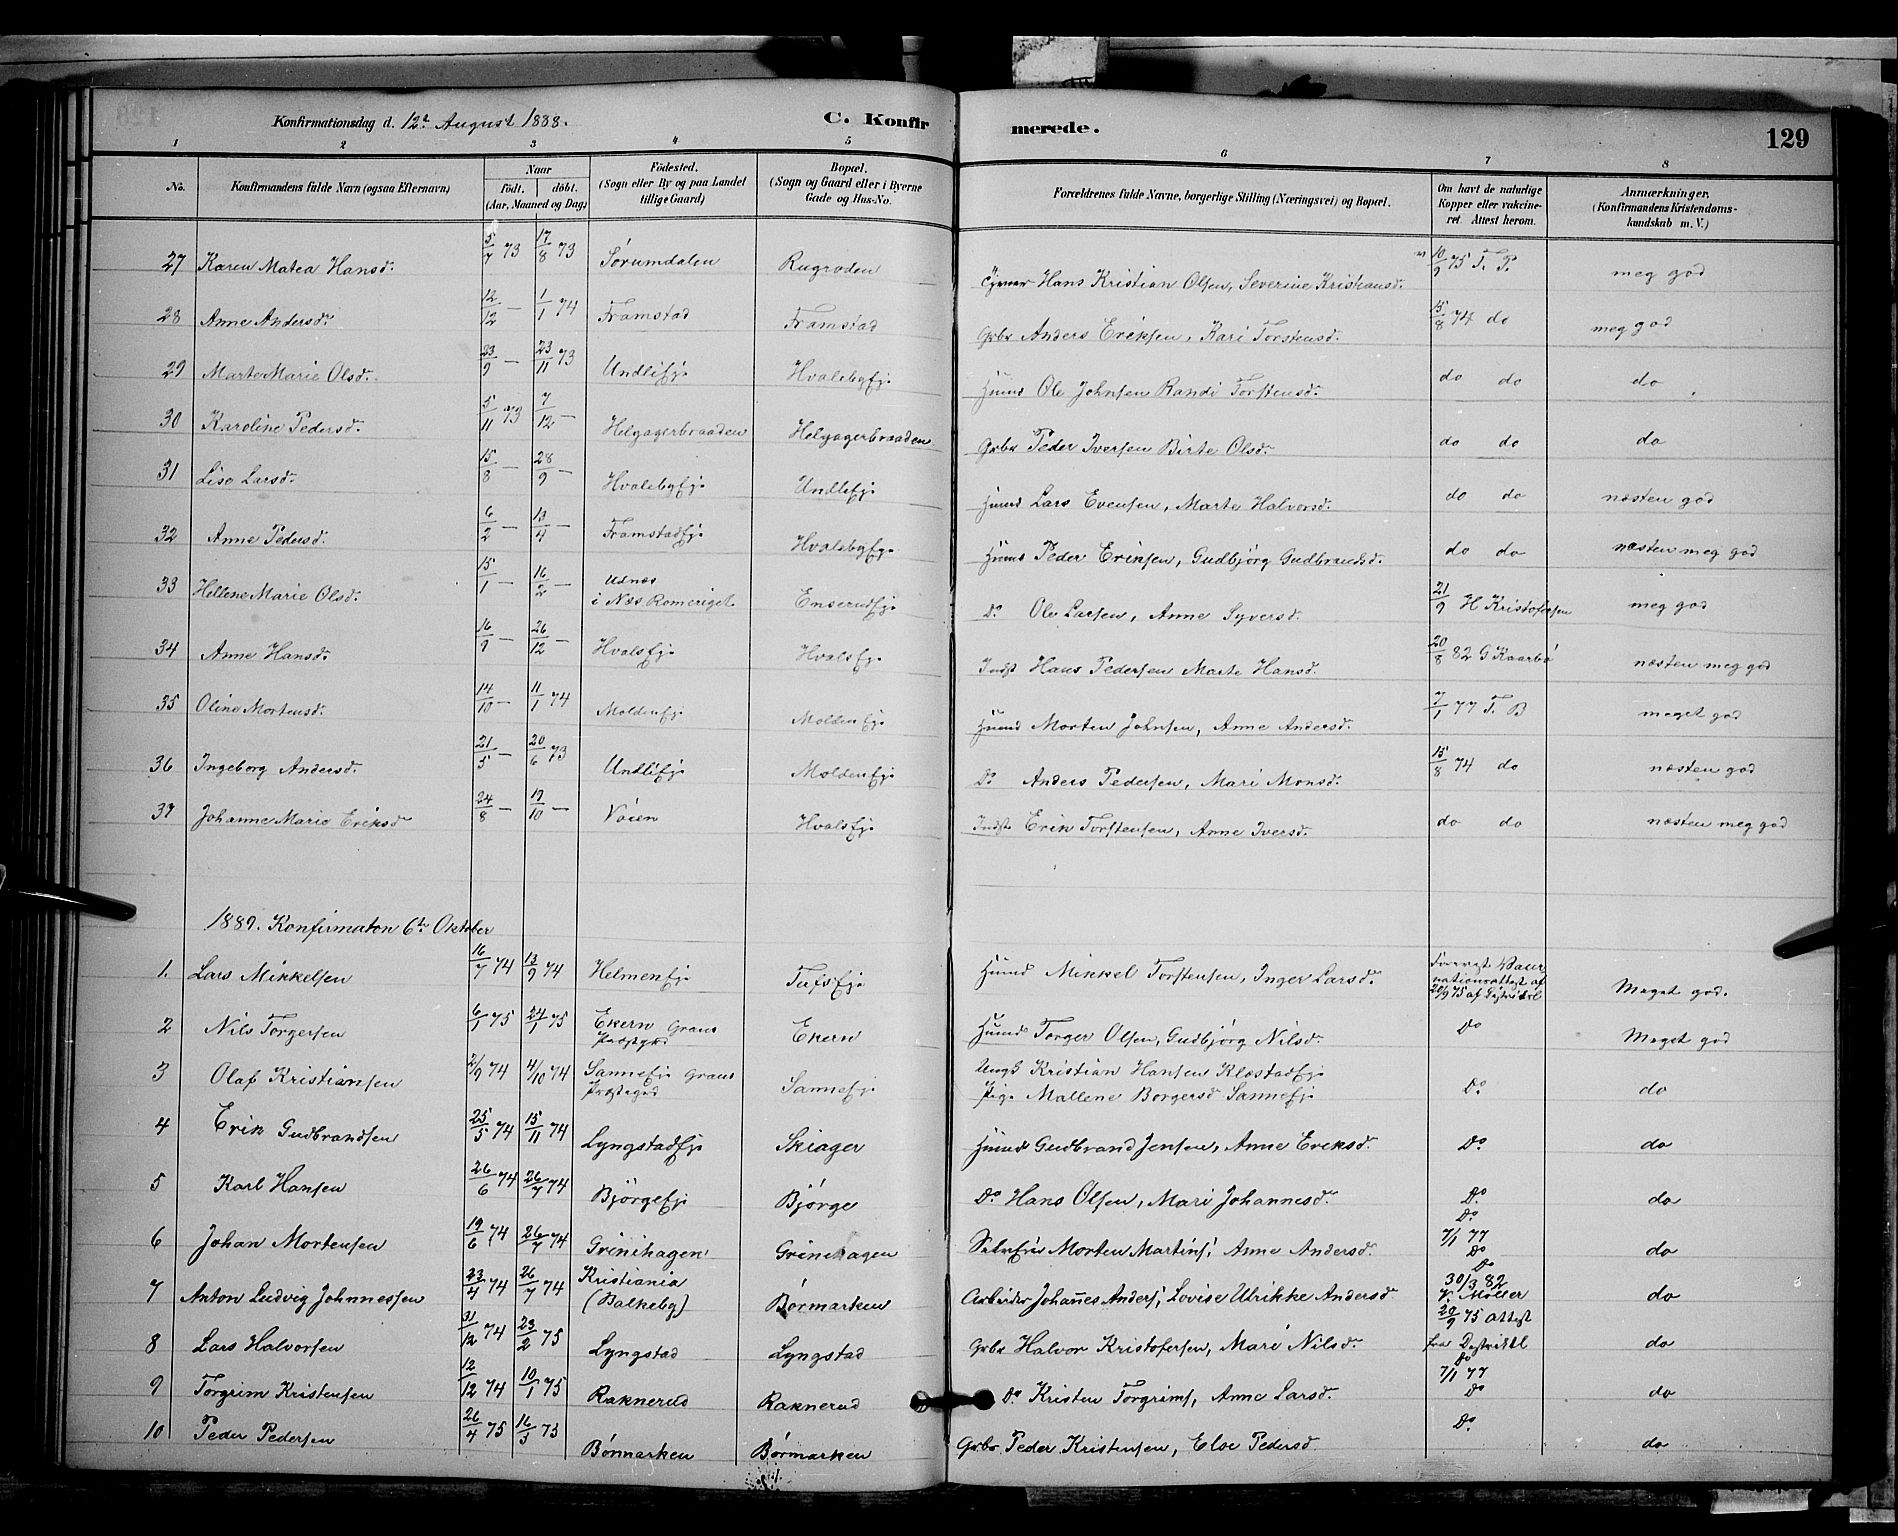 Konfirmationsdag d. 12te August 1888.
C. Konfir
merede.
129
1 2 3 4 5 6 7 8
No. Konfirmandens fulde Navn (ogsaa Efternavn) Naar født. døbt. (Aar, Maaned og Dag) Fødested. (Sogn eller By og paa Landet tillige Gaard) Bopæl. (Sogn og Gaard eller i Byerne Gade og Hus-No. Forældrenes fulde Navne, borgerlige Stilling (Næringsvei) og Bopæl. Om havt de naturlige Kopper eller vakcineret. Attest herom. Anmærkninger. (Konfirmandens Kristendomskundskab m. V.)
27 Karen Matea Hansd. 5/7 73 17/8 73 Sørumdalen Rugroden Hans Kristian Olsen, Severine Kristiansd. 10/9 75 T. P. meg god
28 Anne Andersd. 12/12 — 1/1 74 Framstad Framstad Gbr Anders Eriksen, Kari Torstensd. 15/8 74 do meg god
29 Marte Marie Olsd. 23/9 — 23/11 73 Undliej. Hvalebyej. Husmd Ole Johnsen Randi Torstensd. do do do
30 Karoline Pedersd. 5/11 73 7/12 — Helgagerbraaden Helgagerbraaden Gbr Peder Iversen Birte Olsd. do do do
31 Lise Larsd. 15/8 — 28/9 — Hvalebyej. Undliej. Husmd Lars Evensen, Marte Halvorsd. do do næsten god
32 Anne Pedersd. 6/2 — 13/4 — Framstadej. Hvalebyej. Husmd Peder Eriksen, Gudbjørg Gudbrandsd. do do næsten meg god
33 Hellene Marie Olsd. 15/1 — 16/2 — Udnæs i Næs Romeriget Enserudej. Do Ole Larsen, Anne Syversd. 21/9 H Kristofersen meg god
34 Anne Hansd. 16/9 — 26/12 — Hvalsej. Hvalsej. Indst Hans Pedersen Marte Hansd. 20/8 82 G Kaarbø næsten meg god
35 Oline Mortensd. 14/10 — 11/1 74 Moldenej. Moldenej. Husmd Morten Johnsen, Anne Andersd. 7/1 77 T. B meget god
36 Ingeborg Andersd. 21/5 — 20/6 73 Undliej. Moldenej. Do Anders Pedersen, Mari Monsd. 15/8 74 do næsten god
37 Johanne Marie Eriksd 24/8 — 19/10 — Vøien Hvalsej. Indst Erik Torstensen, Anne Iversd. do do næsten meg god
1889. Konfirmaton 6te Oktober
1. Lars Mikkelsen 16/7 74 13/9 74 Helmenej. Tufsej. Husmd Mikkel Torstensen, Inger Larsd. 20/9 75 af Meget god.
2 Nils Torgersen 6/1 75 24/1 75 Ekern Grans Præstgjd Ekern Husmd Torger Olsen, Gudbjørg Nilsd. Do Meget god
3 Olaf Kristiansen 2/9 74 4/10 74 Sanneej. Grans Præstegjd Sanneej. Ungk Kristian Hansen Klæstadej. Pige Mallene Borgersd Sanneej. Do. do
4 Erik Gudbrandsen 25/5 74 15/11 74 Lyngstadej. Skiager Husmd Gudbrand Jensen, Anne Eriksd. Do. do
5 Karl Hansen 26/6 74 26/7 74 Bjørgeej. Bjørge Do Hans Olsen, Mari Johannesd. Do. do
6 Johan Mortensen 19/6 74 26/7 74 Grinihagen Grinihagen Selveier Morten Martins, Anne Andersd. Do. 7/1 77 Do do
7 Anton Ludvig Johnnessen 23/4 74 26/7 74 Kristiania (Balkeby) Børmarken Arbeider Johañes Anders, Lovise Ulrikke Andersd Do 30/3 82 V. Møller do
8 Lars Halvorsen 31/12 74 23/2 75 Lyngstad Lyngstad Gbr Halvor Kristofersen, Mari Nilsd. 20/9 75 attest fra Distriktl do
9 Torgrim Kristensen 12/12 74 10/1 75 Raknerud Raknerud Do. Kristen Torgrims, Anne Larsd. Do 7/1 77 Do do
10 Peder Pedersen 26/4 75 16/5 75 Børmarken Børmarken Gbr Peder Kristensen, Else Pedersd Do. do